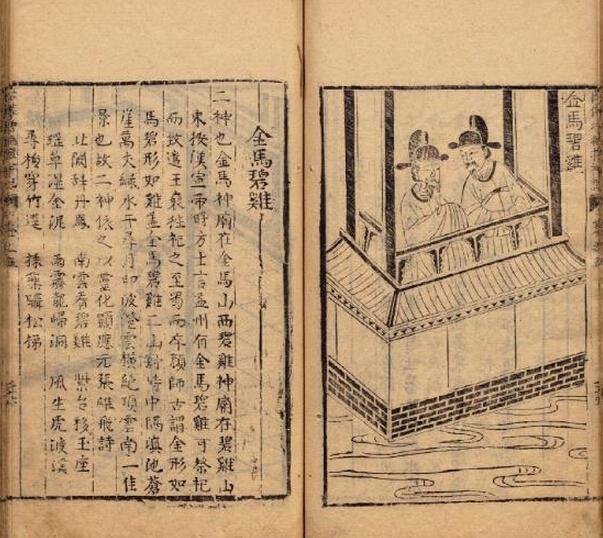 金馬碧雞
金馬碧雞
二神也金馬神廟在金馬山西碧雞神廟在碧雞山
東按漢宣帝時方士言益州有金馬碧雞可祭祀
而致遣王褒往祀之至蜀而卒顏師古謂金形如
馬碧形如雞蓋金馬碧雞二山對峙中隔滇池蒼
崖萬丈綠水千尋月印波澄雲橫絶頂雲南一佳
景也故二神依之以靈化顯應元張雄飛詩
北闕 丹鳳　南雲看碧雞　紫台移玉座
瑶草湿金泥　雨霽龍歸洞　風生虎渡溪
尋梅穿竹逕　採藥躡松梯